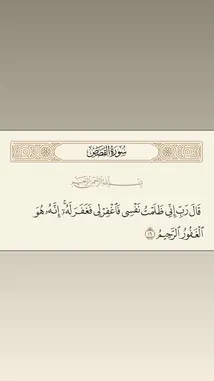 سُورَةُ القَصَصِ
بِسْمِ اللَّهِ الرَّحْمَٰنِ الرَّحِيمِ
قَالَ رَبِّ إِنِّي ظَلَمْتُ نَفْسِي فَاغْفِرْ لِي فَغَفَرَ لَهُۥٓۚ إِنَّهُۥ هُوَ
ٱلْغَفُورُ ٱلرَّحِيمُ ١٦